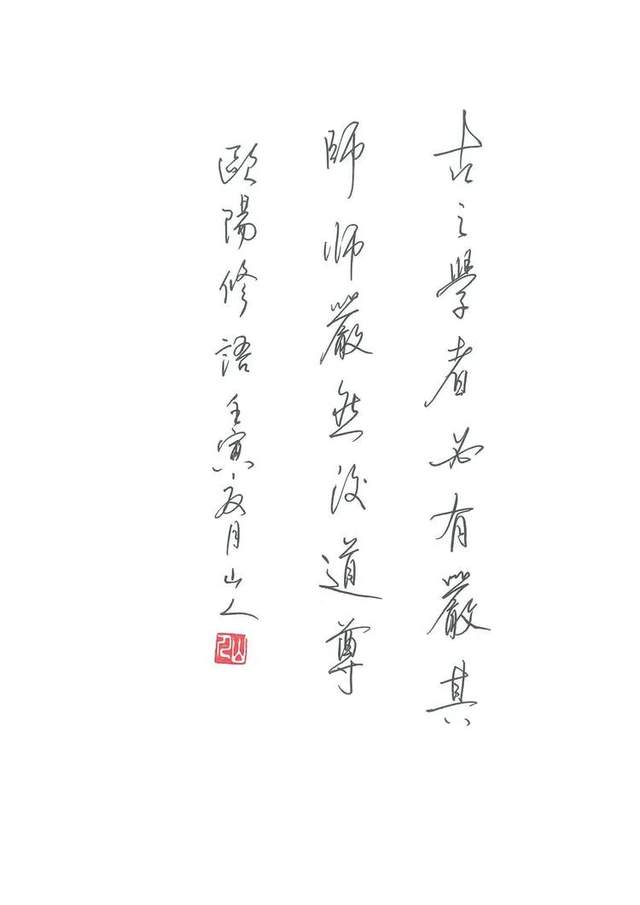 古之學者必有嚴其
師師嚴然後道尊
歐陽修語壬寅夏月山人
山人